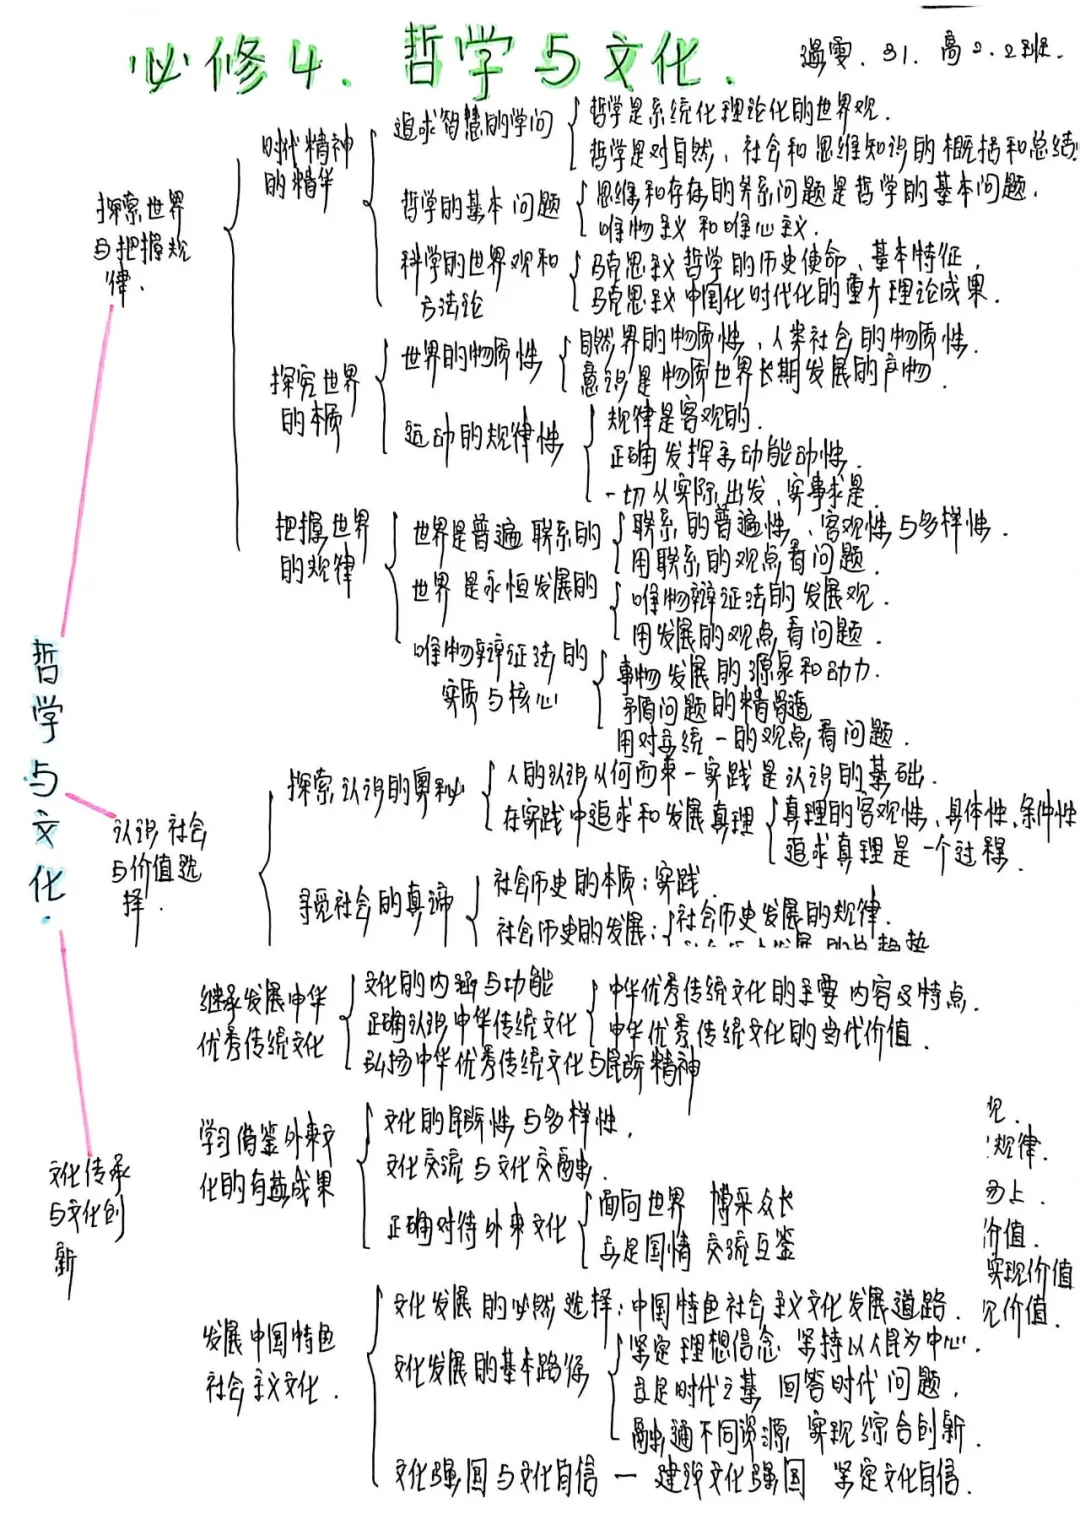 必修4.哲学与文化.
31.高2.2班.
哲学与文化.
探索世界
与把握规
律.
时代精神
的精华
追求智慧的学问
哲学是系统化理论化的世界观.
哲学是对自然、社会和思维知识的概括和总结
哲学的基本问题
思维和存在的关系问题是哲学的基本问题.
唯物主义和唯心主义.
科学的世界观和
方法论
马克思主义哲学的历史使命、基本特征,
马克思主义中国化时代化的重大理论成果.
探究世界
的本质
世界的物质性
自然界的物质性、人类社会的物质性.
意识是物质世界长期发展的产物.
运动的规律性
规律是客观的.
正确发挥主动能动性.
一切从实际出发、实事求是
把握世界
的规律
世界是普遍联系的
联系的普遍性、客观性与多样性.
用联系的观点看问题.
世界是永恒发展的
唯物辩证法的发展观.
用发展的观点看问题.
唯物辩证法的
实质与核心
事物发展的源泉和动力.
矛盾问题的精
用对立统一的观点看问题.
认识社会
与价值选
择.
探索认识的奥秘
人的认识从何而来-实践是认识的基础.
在实践中追求和发展真理
真理的客观性、具体性、条件性
追求真理是一个过程.
寻觅社会的真谛
社会历史的本质:实践.
社会历史的发展:
社会历史发展的规律.
文化传承
与文化创
新
继承发展中华
优秀传统文化
文化的内涵与功能
正确认识中华传统文化
中华优秀传统文化的主要内容及特点.
中华优秀传统文化的当代价值.
弘扬中华优秀传统文化与民族精神
学习借鉴外来文
化的有益成果
文化的民族性与多样性.
文化交流与文化交融.
正确对待外来文化
面向世界 博采众长
立足国情 交流互鉴
规律.
价值.
实现价值
价值.
发展中国特色
社会主义文化.
文化发展的必然选择:中国特色社会主义文化发展道路.
文化发展的基本路径
坚定理想信念 坚持以人民为中心.
立足时代之基 回答时代问题.
融通不同资源 实现综合创新.
文化强国与文化自信 — 建设文化强国 坚定文化自信.